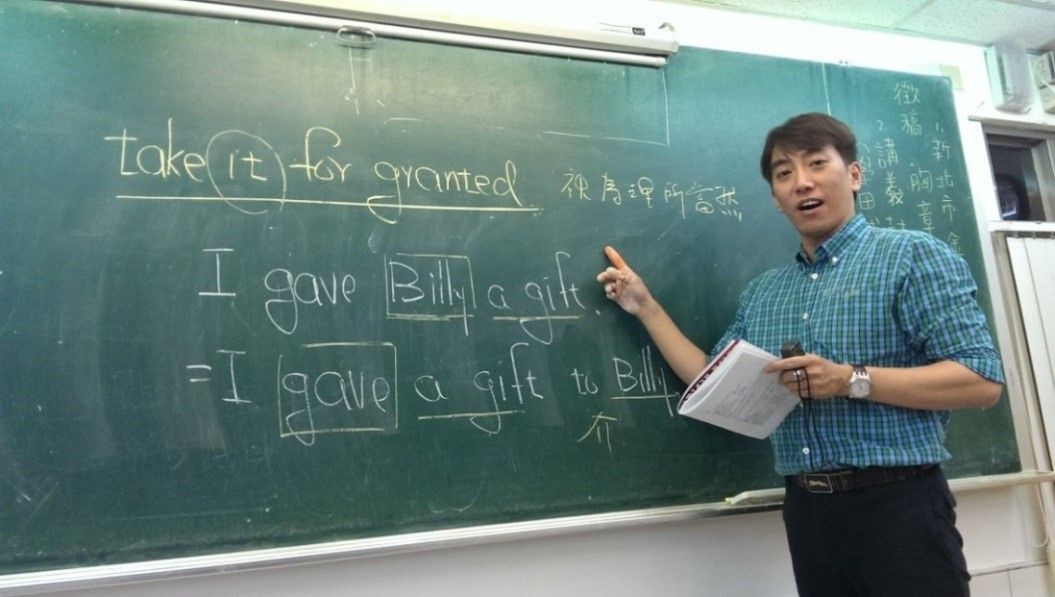 take it for granted 視為理所當然
I gave Billy a gift.
=I gave a gift to Billy
介
徵稿
1. 新北市
胸章
2. 講義